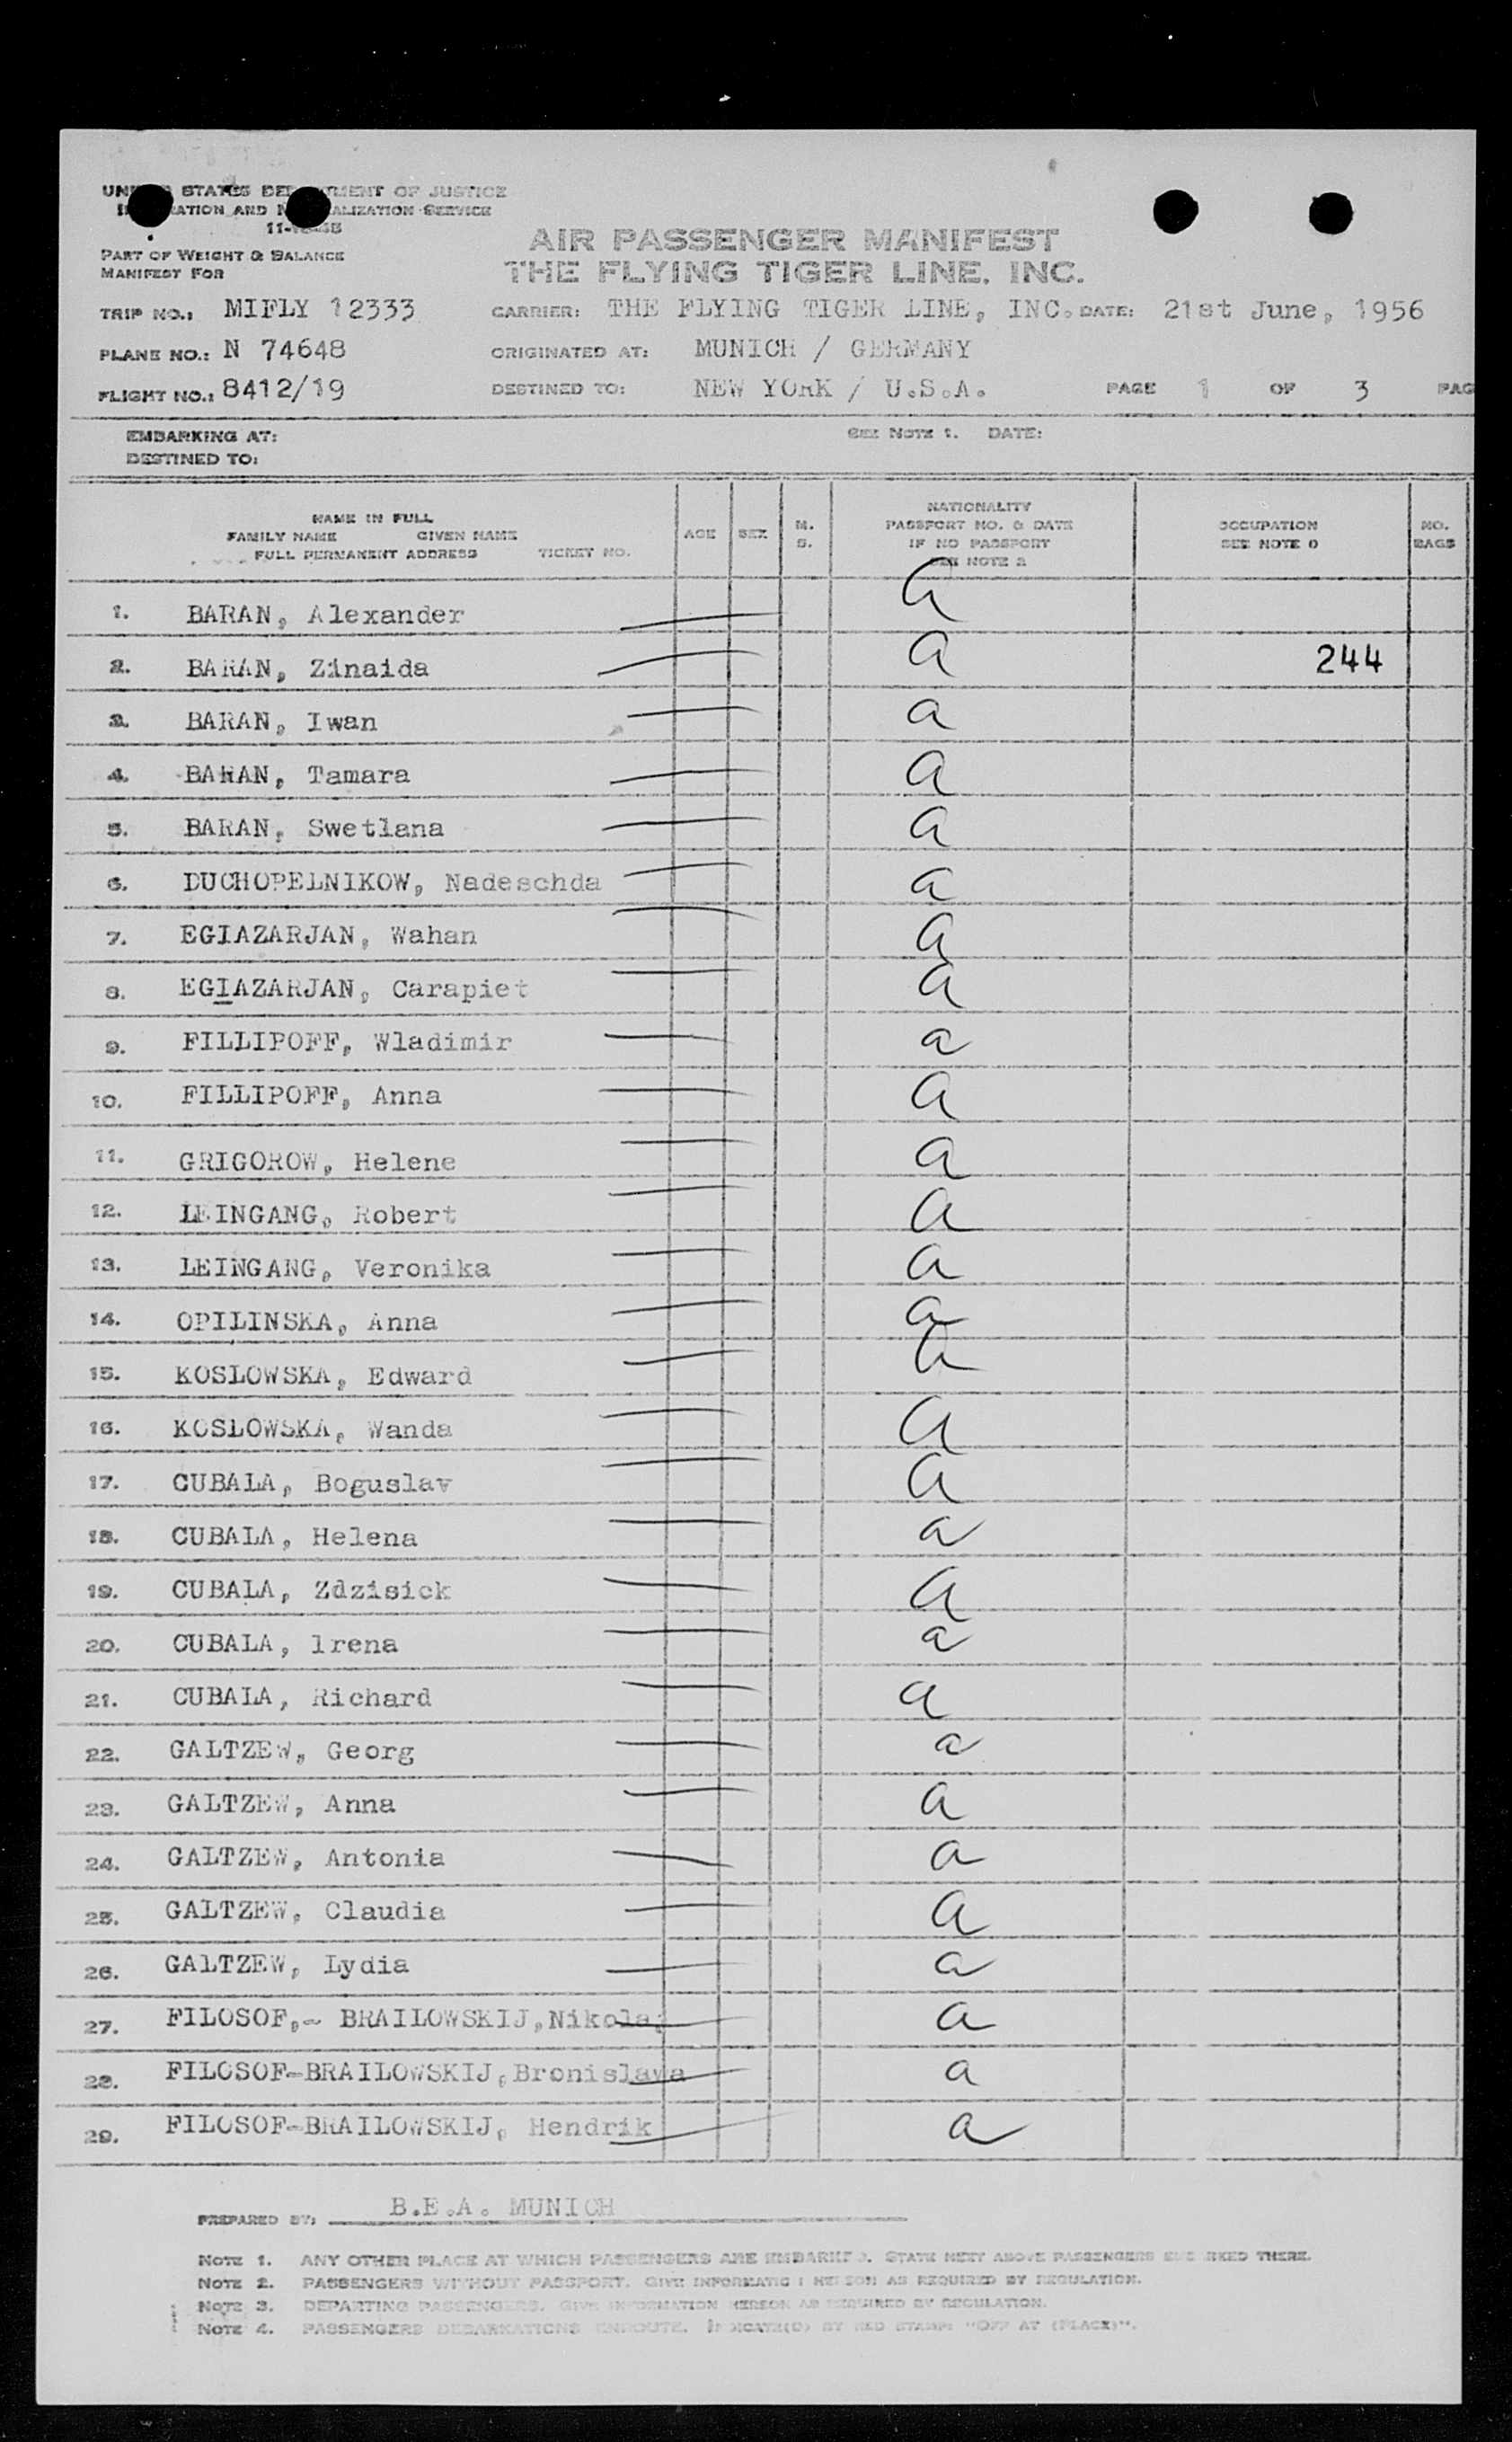 STATES OF JUSTICE
AND SERVICE
PART OF WEIGHT & BALANCE
MANIFEST FOR
AIR PASSENGER MANIFEST
THE FLYING TIGER LINE, INC.
TRIP NO.: MIFLY 12333 CARRIER: THE FLYING TIGER LINE, INC. DATE: 21st June, 1956
PLANE NO.: N 74648 ORIGINATED AT: MUNICH / GERMANY
FLIGHT NO.: 8412/19 DESTINED TO: NEW YORK / U.S.A. PAGE 1 OF 3 PAG
EMBARKING AT: SEE NOTE 1. DATE:
DESTINED TO:
NAME IN FULL
FAMILY NAME GIVEN NAME
FULL PERMANENT ADDRESS TICKET NO.
AGE SEX M. S.
NATIONALITY
PASSPORT NO. & DATE
IF NO PASSPORT
SEE NOTE 2
OCCUPATION
SEE NOTE
NO.
BAGS
1. BARAN, Alexander a
2. BARAN, Zinaida a 244
3. BARAN, Iwan a
4. BARAN, Tamara a
5. BARAN, Swetlana a
6. DUCHOPELNIKOW, Nadeschda a
7. EGIAZARJAN, Wahan a
8. EGIAZARJAN, Carapiet a
9. FILLIPOFF, Wladimir a
10. FILLIPOFF, Anna a
11. GRIGOROW, Helene a
12. LEINGANG, Robert a
13. LEINGANG, Veronika a
14. OPILINSKA, Anna a
15. KOSLOWSKA, Edward a
16. KOSLOWSKA, Wanda a
17. CUBALA, Boguslav a
18. CUBALA, Helena a
19. CUBALA, Zdzisick a
20. CUBALA, lrena a
21. CUBALA, Richard a
22. GALTZEW, Georg a
23. GALTZEW, Anna a
24. GALTZEW, Antonia a
25. GALTZEW, Claudia a
26. GALTZEW, Lydia a
27. FILOSOF,- BRAILOWSKIJ,Nikolaj a
28. FILOSOF-BRAILOWSKIJ,Bronislawa a
29. FILOSOF-BRAILOWSKIJ, Hendrik a
PREPARED BY: B.E.A. MUNICH
NOTE 1. ANY OTHER PLACE AT WHICH PASSENGERS ARE EMBARKED. STATE NEXT ABOVE PASSENGERS THERE.
NOTE 2. PASSENGERS WITHOUT PASSPORT. GIVE INFORMATION HEREON AS REQUIRED BY REGULATION.
NOTE 3. DEPARTING PASSENGERS. GIVE INFORMATION HEREON AS REQUIRED BY REGULATION.
NOTE 4. PASSENGERS DEBARKATIONS ENROUTE. INDICATE(D) BY RED STAMP: "OFF AT (PLACE)".